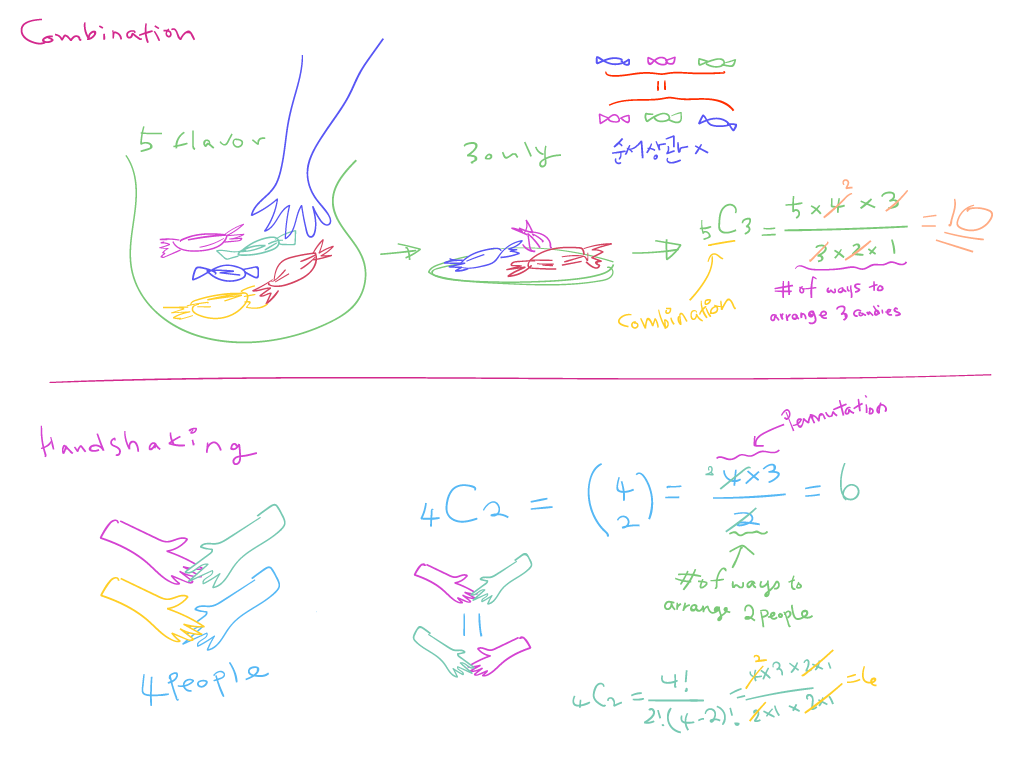 Combination
5 flavor
3 only
=
순서상관 x
₅C₃ = 5 x 4 x 3 / 3 x 2 x 1 = 10
2
Combination
# of ways to
arrange 3 candies
Handshaking
Permutation
₄C₂ = (4 2) = 4x3 / 2 = 6
2
# of ways to
arrange 2 people
=
4 People
₄C₂ = 4! / 2!(4-2)! = 4x3x2x1 / 2x1x2x1 = 6
2